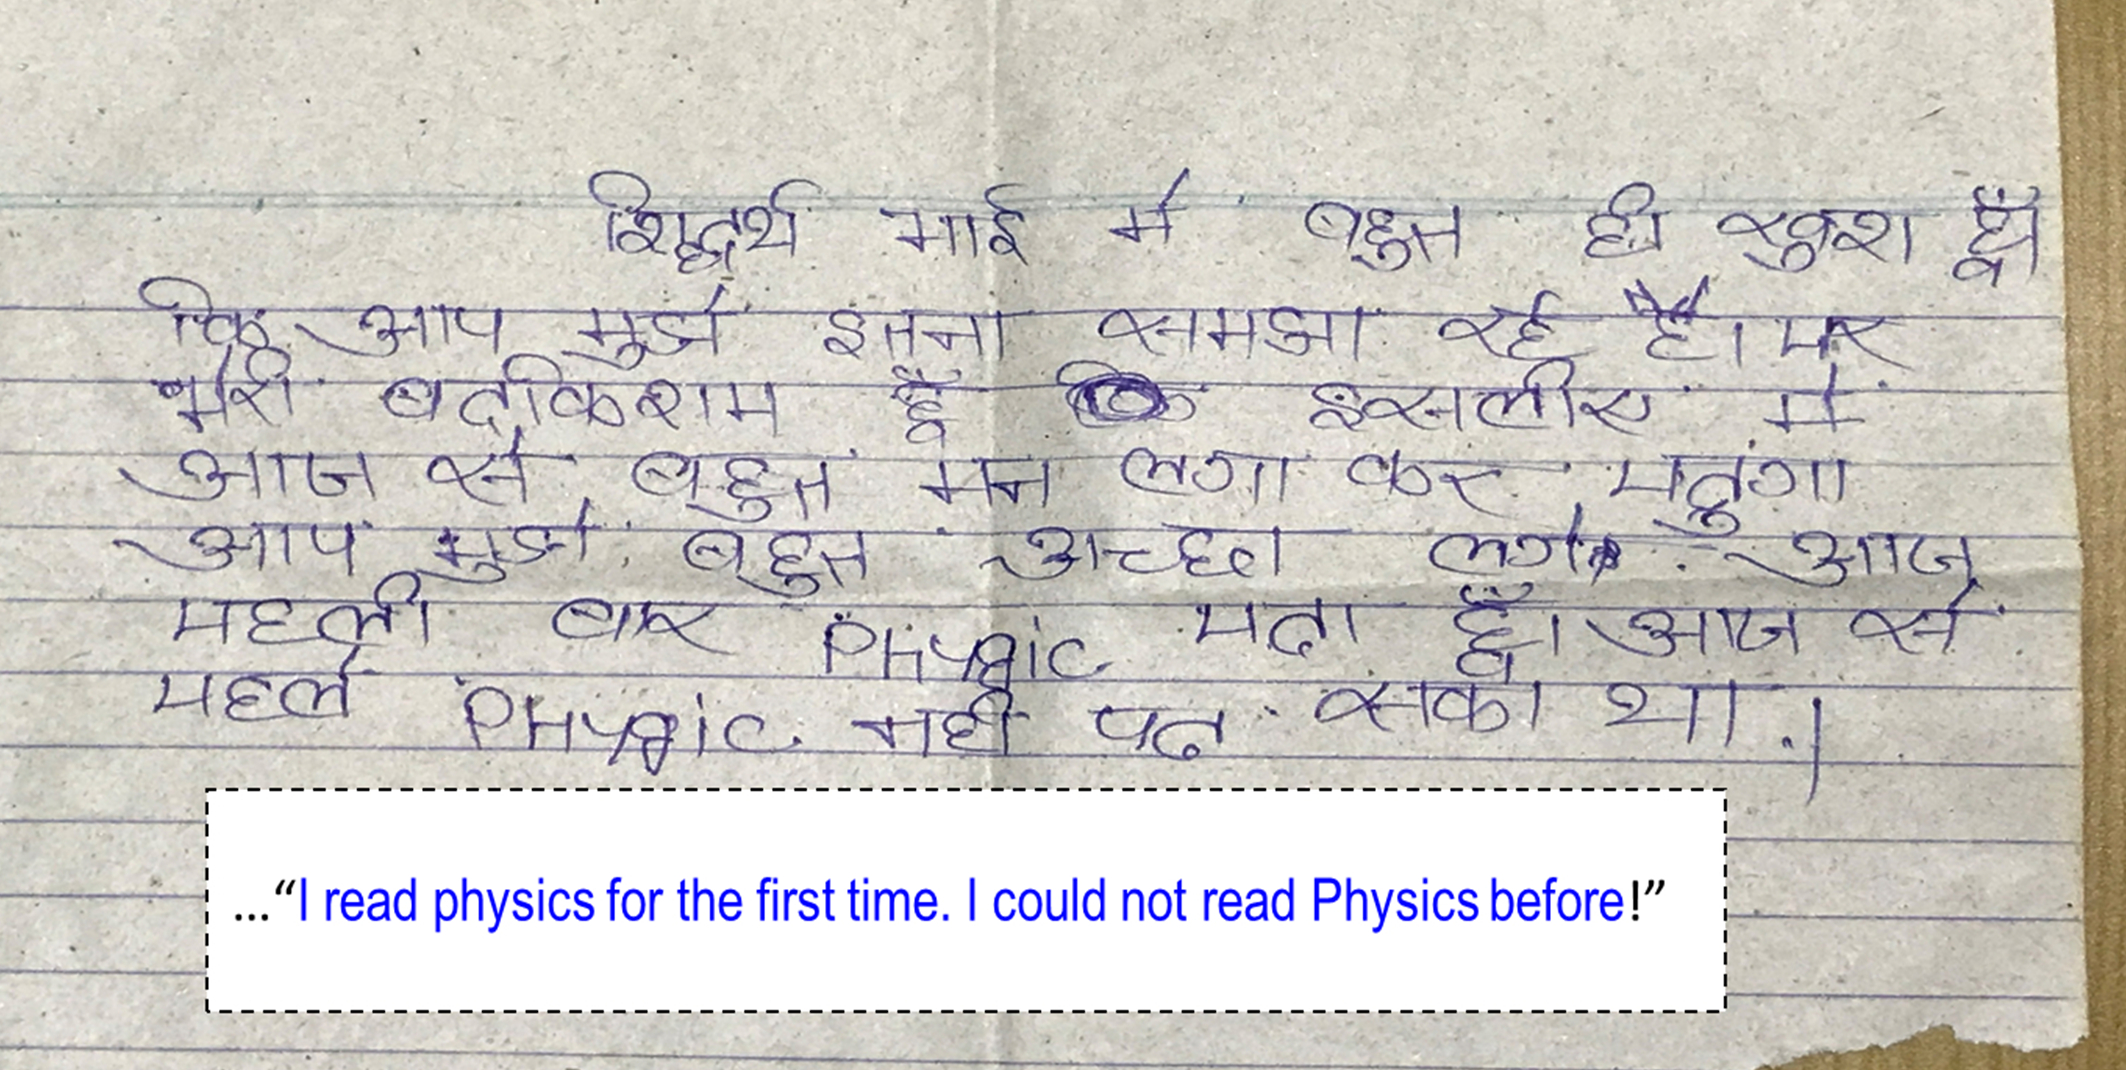 शिद्धर्थ भाई में बहुत ही खुश हूँ
कि आप मुझे इतना समझा रहे हैं। पर
मेरी बदकिशमत हूँ इसलीए में
आज से बहुत मन लगा कर पढुंगा
आप मुझे बहुत अच्छा लगे आज
पहली बार PHYSic पढा हूँ। आज से
पहले PHYSic नही पढ सका था.|
..."I read physics for the first time. I could not read Physics before!"